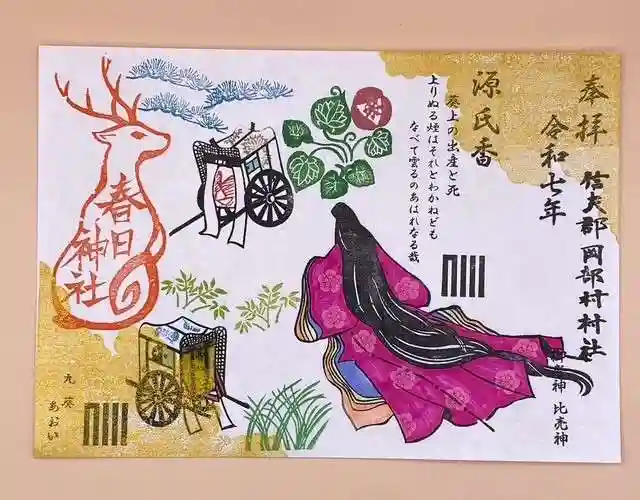 奉拝
信夫郡岡部村村社
令和七年
源氏香
葵上の出産と死
上りぬる煙はそれとわかねども
なべて雲ゐのあはれなる哉
春日
神社
比売神
九 葵
あおい